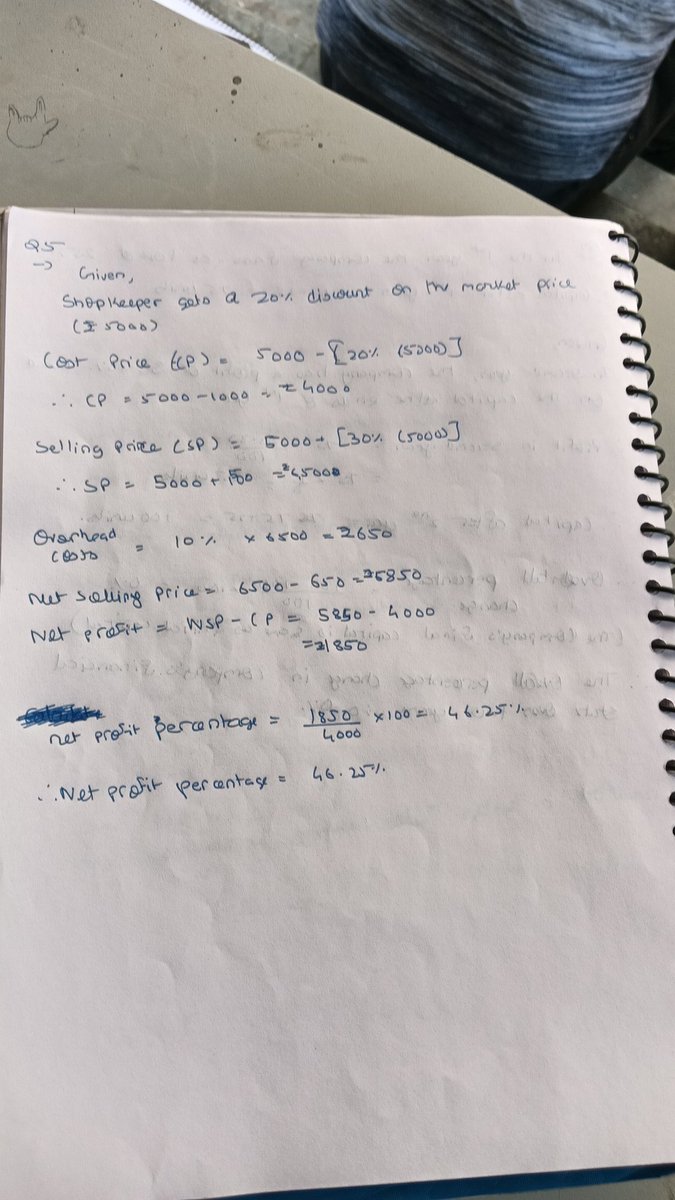 Q5
→ Given,
Shopkeeper gets a 20% discount on the market price
(₹ 5000)
Cost Price (CP) = 5000 - [20% (5000)]
∴ CP = 5000 - 1000 = ₹4000
Selling Price (SP) = 5000 + [30% (5000)]
∴ SP = 5000 +
Overhead
costs = 10% × 6500 = ₹650
Net Selling Price = 6500 - 650 = ₹5850
Net profit = NSP - CP = 5850 - 4000
= ₹1850
net profit percentage = 1850/4000 × 100 = 46.25%
∴ Net profit percentage = 46.25%